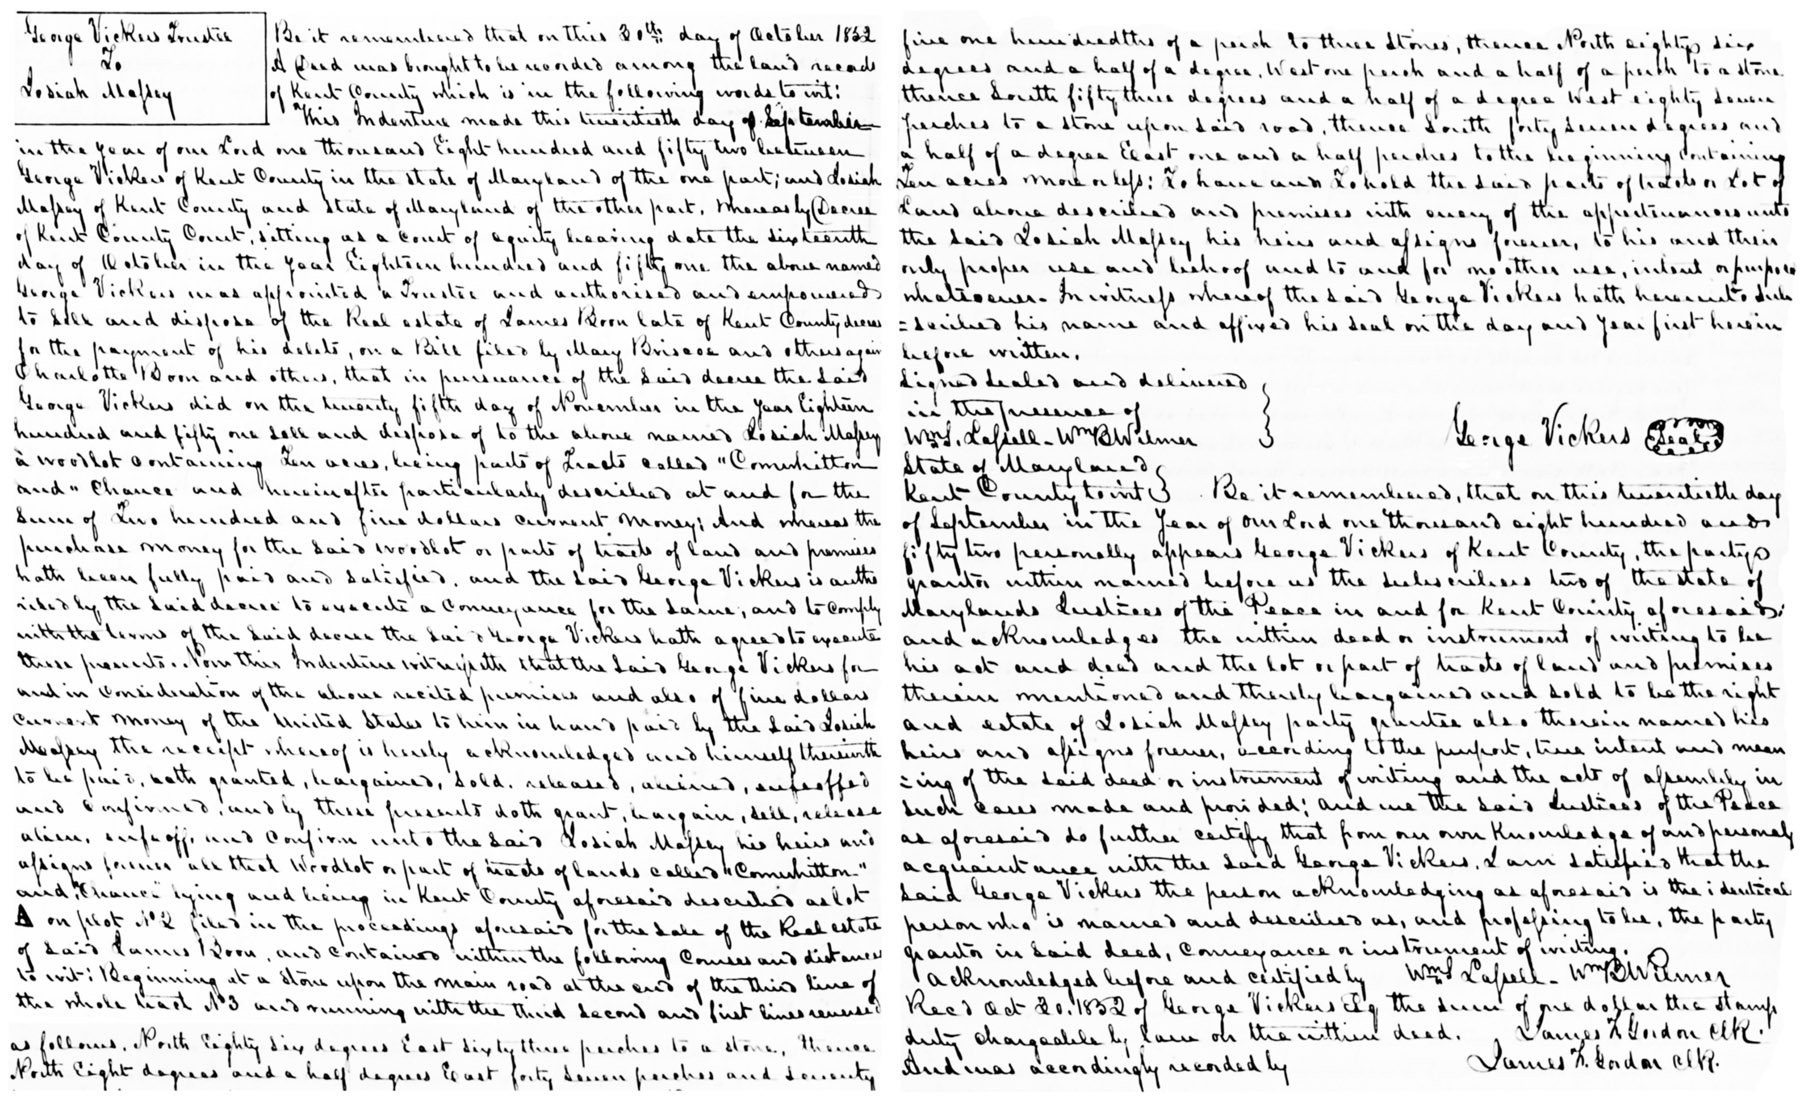 George Vickers Trustee
To
Josiah Massey
Be it remembered that on this 30th day of October 1852
A Deed was brought to be recorded among the land records
of Kent County which is in the following words to wit:
This Indenture made this twentieth day of September
in the year of our Lord one thousand Eight hundred and fifty two between
George Vickers of Kent County in the state of Maryland of the one part; and Josiah
Massey of Kent County and state of Maryland of the other part. Whereas by Decree
of Kent County Court, sitting as a court of equity bearing date the sixteenth
day of October in the year Eighteen hundred and fifty one the above named
George Vickers was appointed a Trustee and authorised and empowered
to sell and dispose of the Real estate of James Boon late of Kent County deceas
for the payment of his debts, on a Bill filed by Mary Briscoe and others again
Charlotte Boon and others, that in pursuance of the said decree the said
George Vickers did on the twenty fifth day of November in the year Eighteen
hundred and fifty one sell and dispose of to the above named Josiah Massey
a woodlot containing Ten acres, being parts of Tracts called "Comwhitton
and "Chance and hereinafter particularly described at and for the
sum of Two hundred and five dollars current money; And whereas the
purchase money for the said woodlot or parts of tracts of land and premises
hath been fully paid and satisfied, and the said George Vickers is autho
rised by the said decree to execute a conveyance for the same, and to comply
with the terms of the said decree the said George Vickers hath agreed to execute
these presents. Now this Indenture witnesseth that the said George Vickers for
and in consideration of the above recited premises and also of five dollars
current money of the United States to him in hand paid by the said Josiah
Massey the receipt whereof is hereby acknowledged and himself therewith
to be paid, hath granted, bargained, sold, released, aliened, enfeoffed
and confirmed, and by these presents doth grant, bargain, sell, release
alien, enfeoff, and confirm unto the said Josiah Massey his heirs and
assigns forever all that Woodlot or part of tracts of lands called "Comwhitton"
and "Chance" lying and being in Kent County aforesaid described as lot
A on plot No 2 filed in the proceedings aforesaid for the sale of the Real estate
of said James Boon, and contained within the following Courses and distances
to wit: Beginning at a stone upon the main road at the end of the third line of
the whole tract No 3 and running with the third second and first lines reversed
as follows, North Eighty six degrees East sixty three perches to a stone, thence
North Eight degrees and a half degrees East forty seven perches and seventy
five one hundredths of a perch to three stones, thence North eighty six
degrees and a half of a degree, West one perch and a half of a perch to a stone
thence South fifty three degrees and a half of a degree West eighty seven
perches to a stone upon said road, thence South forty seven degrees and
a half of a degree East one and a half perches to the beginning containing
Ten acres more or less: To have and To hold the said parts of tracts or Lot of
Land above described and premises with every of the appertenances unto
the said Josiah Massey his heirs and assigns forever, to his and their
only proper use and behoof and to and for no other use, intent or purpose
whatsoever. In witness whereof the said George Vickers hath hereunto sub
=scribed his name and affixed his seal on the day and year first herein
before written.
Signed sealed and delivered
in the presence of
Wm S. Lassell - Wm B Wilmer
George Vickers Seal
State of Maryland
Kent County to wit Be it remembered, that on this twentieth day
of September in the year of our Lord one thousand eight hundred and
fifty two personally appears George Vickers of Kent County, the party
grantor within named before us the subscribers two of the state of
Marylands Justices of the Peace in and for Kent County aforesaid:
and acknowledges the within deed or instrument of writing to be
his act and deed and the lot or part of tracts of land and premises
therein mentioned and thereby bargained and sold to be the right
and estate of Josiah Massey party grantee also therein named his
heirs and assigns forever, according to the purport, true intent and mean
=ing of the said deed or instrument of writing and the act of assembly in
such cases made and provided; and we the said Justices of the Peace
as aforesaid do further certify that from our own knowledge of and personal
acquaintance with the said George Vickers, I am satisfied that the
said George Vickers the person acknowledging as aforesaid is the identical
person who is named and described as, and professing to be, the party
grantor in said deed, conveyance or instrument of writing.
Acknowledged before and certified by Wm S Lassell - Wm B Wilmer
Recd Oct 30. 1852 of George Vickers Esq the sum of one dollar the stamp
duty chargeable by law on the within deed. James F. Gordon Clk.
And was accordingly recorded by James F. Gordon Clk.